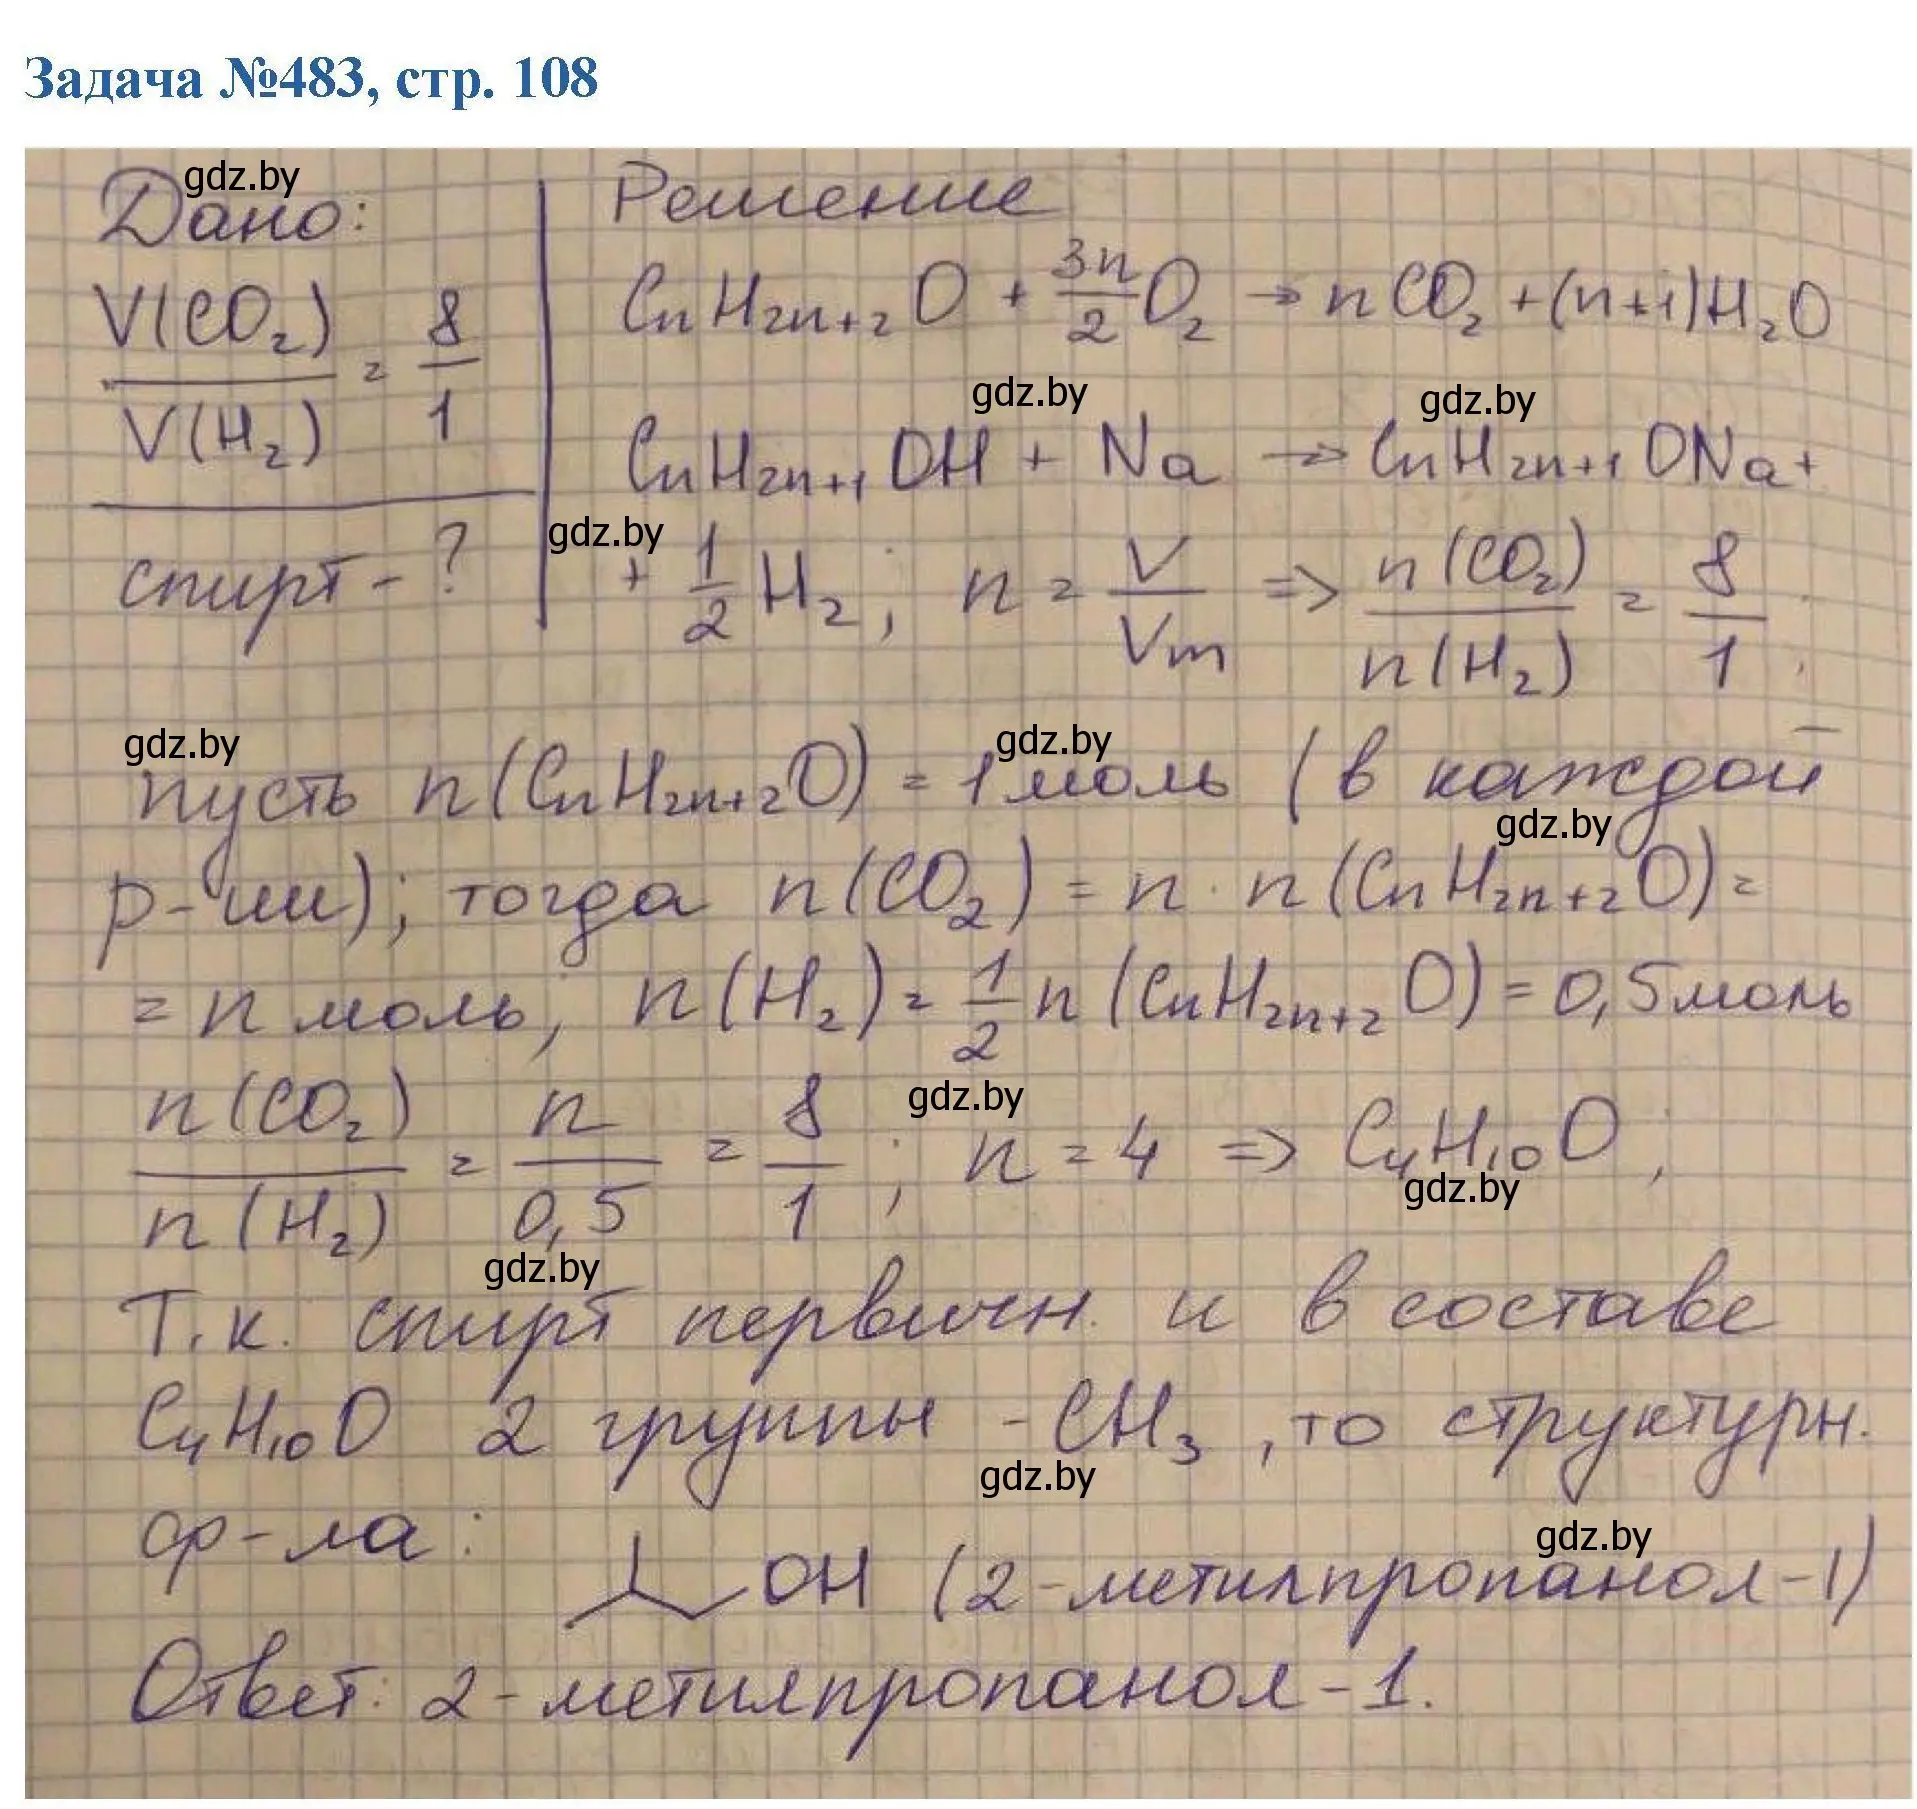 Задача №483, стр. 108
gdz.by
Дано: Решение
V(CO₂)/V(H₂) = 8/1
CnH2n+2O + 3n/2 O₂ → nCO₂ + (n+1)H₂O
gdz.by gdz.by
CnH2n+1OH + Na → CnH2n+1ONa +
gdz.by
спирт - ? + 1/2 H₂; n = V/Vm => n(CO₂)/n(H₂) = 8/1;
gdz.by gdz.by
пусть n(CnH2n+2O) = 1 моль (в каждой
gdz.by
р-ции); тогда n(CO₂) = n · n(CnH2n+2O) =
= n моль; n(H₂) = 1/2 n(CnH2n+2O) = 0,5 моль
gdz.by
n(CO₂)/n(H₂) = n/0,5 = 8/1; n = 4 => C₄H₁₀O;
gdz.by
gdz.by
Т.к. спирт первичн. и в составе
C₄H₁₀O 2 группы -CH₃, то структурн.
gdz.by
ф-ла:
gdz.by
OH (2-метилпропанол-1)
Ответ: 2-метилпропанол-1.